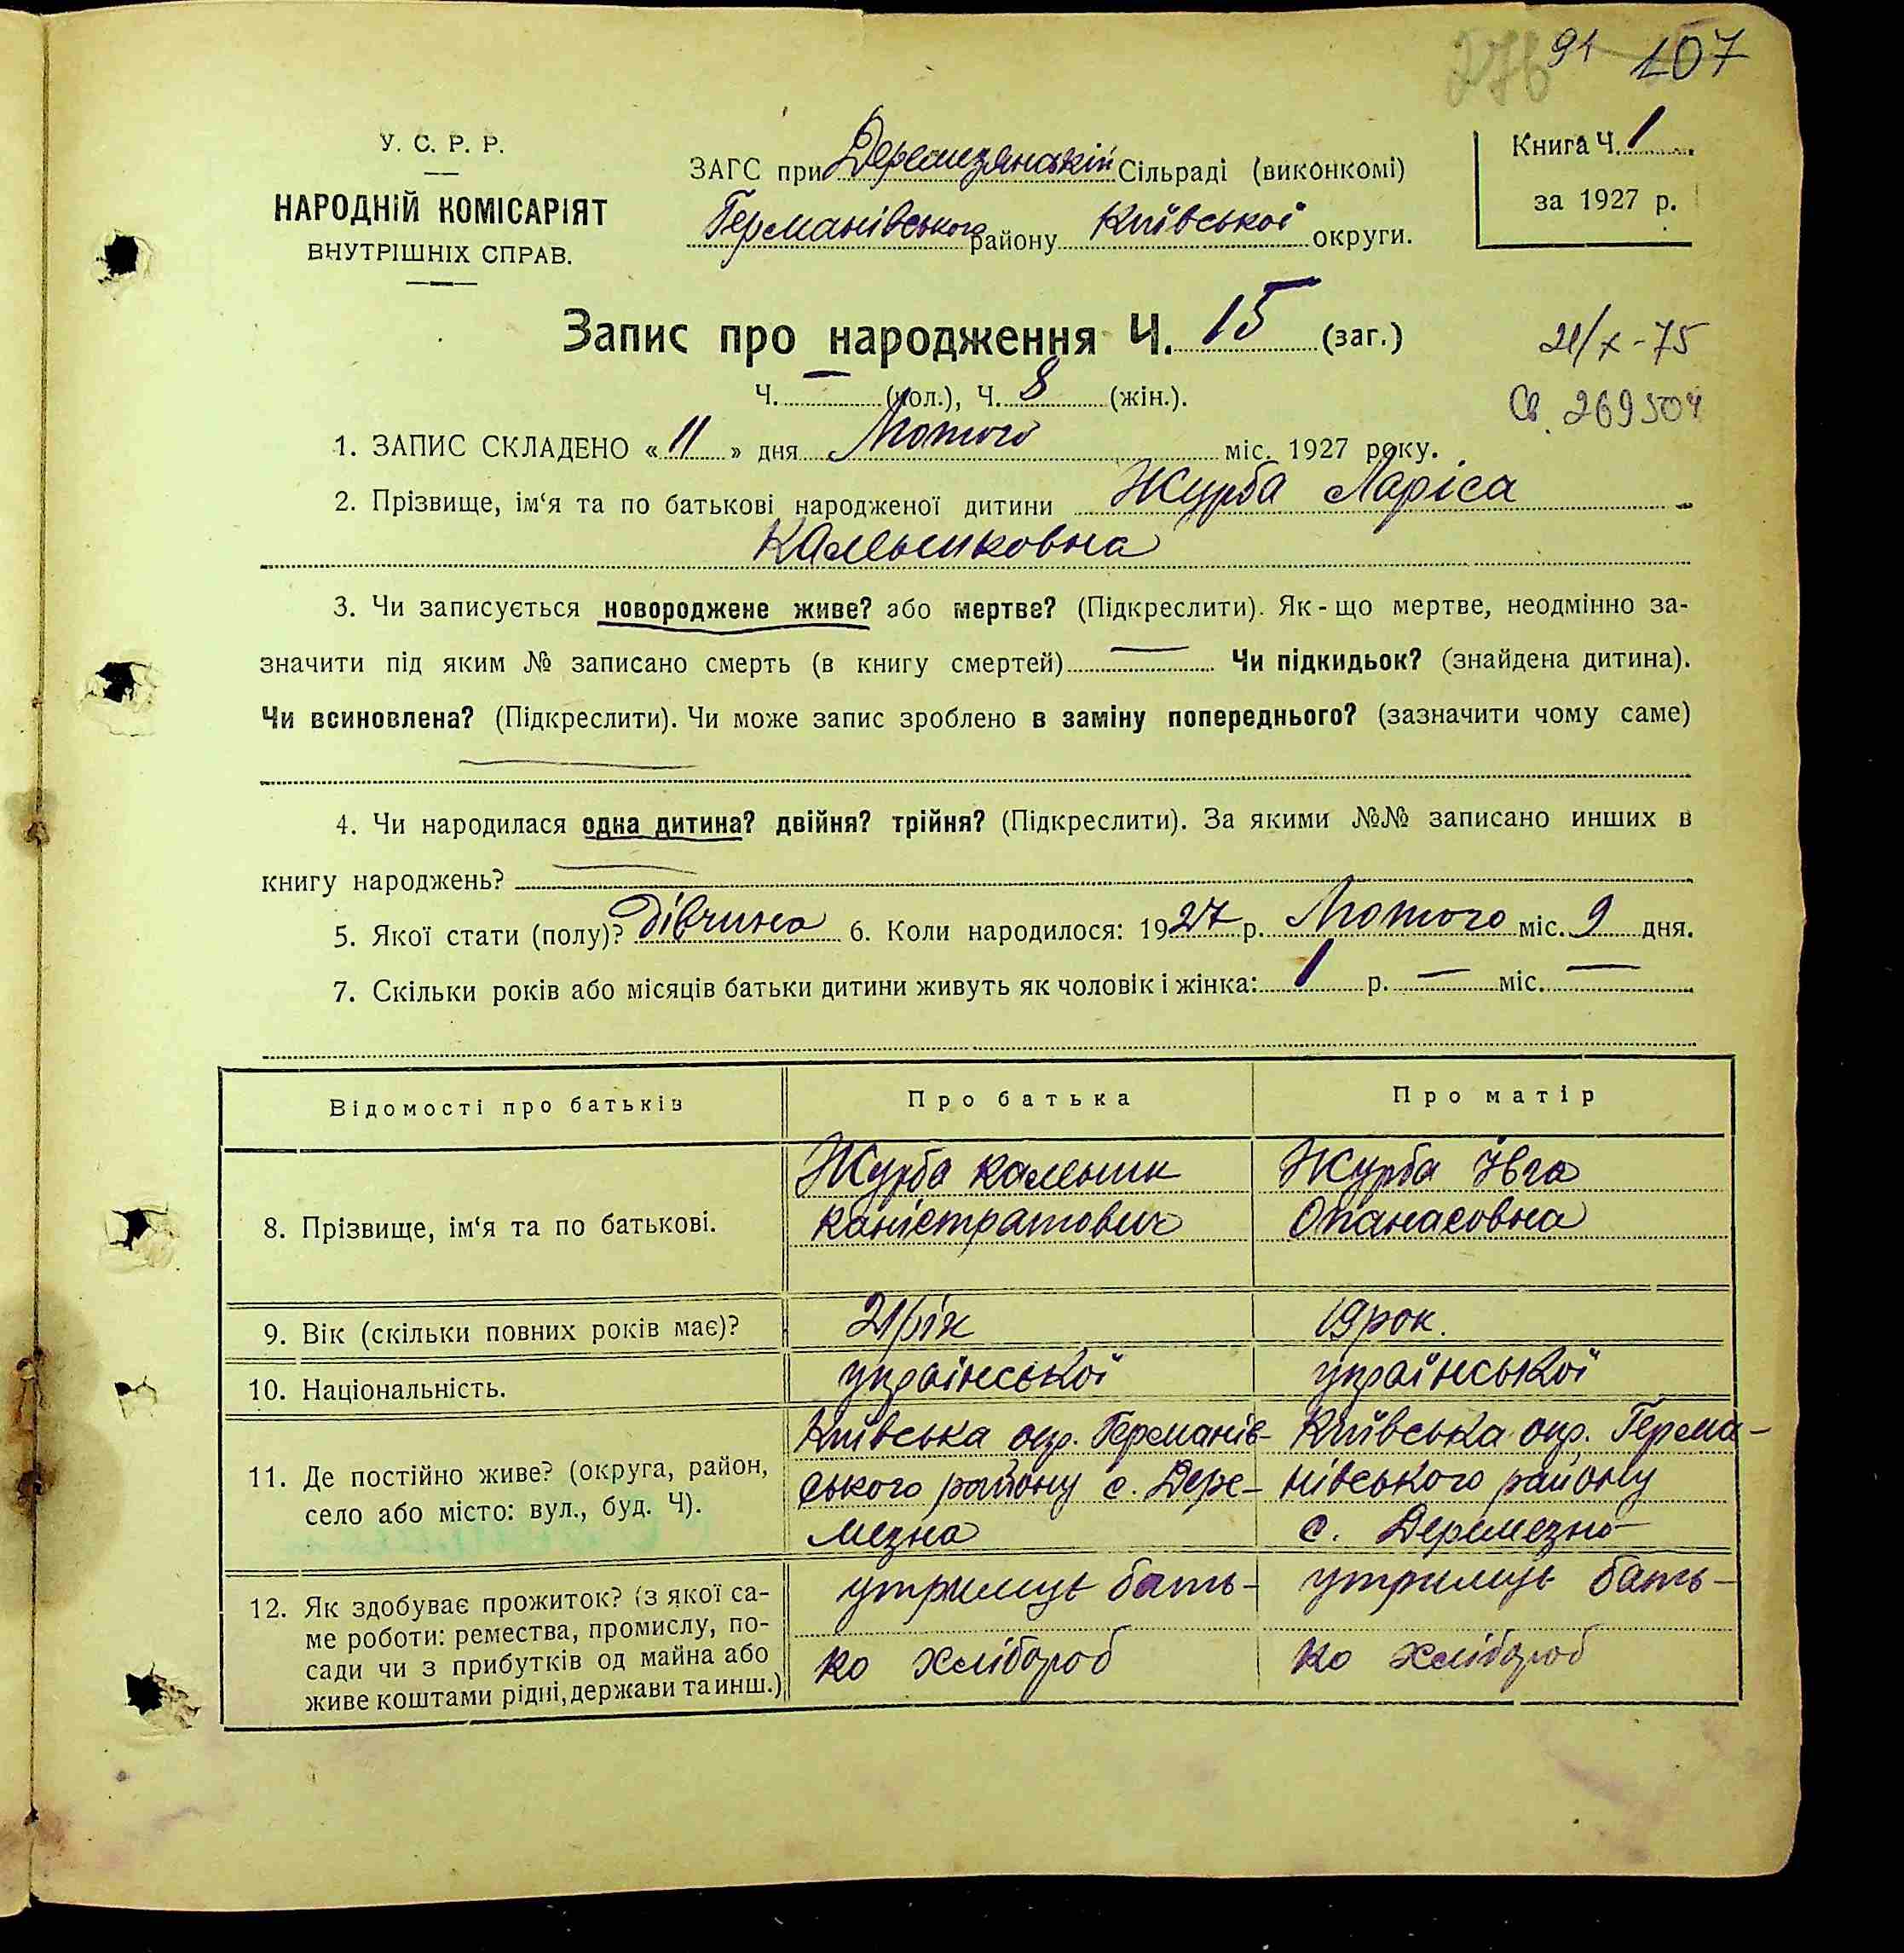 276 91 107
У. С. Р. Р.
НАРОДНІЙ КОМІСАРІЯТ
ВНУТРІШНІХ СПРАВ.
ЗАГС при Деремезянській Сільраді (виконкомі)
Германівського району Київської округи.
Книга Ч. 1
за 1927 р.
Запис про народження Ч. 15 (заг.)
Ч. — (чол.), Ч. 8 (жін.).
21/X-75
Св. 269504
1. ЗАПИС СКЛАДЕНО « 11 » дня Лютого міс. 1927 року.
2. Прізвище, ім‘я та по батькові народженої дитини Журба Ларіса
Кальниковна
3. Чи записується новороджене живе? або мертве? (Підкреслити). Як-що мертве, неодмінно за-
значити під яким № записано смерть (в книгу смертей) — Чи підкидьок? (знайдена дитина).
Чи всиновлена? (Підкреслити). Чи може запис зроблено в заміну попереднього? (зазначити чому саме)
—
4. Чи народилася одна дитина? двійня? трійня? (Підкреслити). За якими №№ записано инших в
книгу народжень? —
5. Якої стати (полу)? дівчина 6. Коли народилося: 1927 р. Лютого міс. 9 дня.
7. Скільки років або місяців батьки дитини живуть як чоловік і жінка: 1 р. — міс. —
Відомості про батьків
Про батька
Про матір
8. Прізвище, ім‘я та по батькові.
Журба Кальник
Каністратович
Журба Івга
Опанасовна
9. Вік (скільки повних років має)?
21 рік
19 рок.
10. Національність.
української
української
11. Де постійно живе? (округа, район,
село або місто: вул., буд. Ч).
Київська окр. Германів-
ського району с. Дере-
мезна
Київська окр. Герма-
нівського району
с. Деремезно
12. Як здобуває прожиток? (з якої са-
ме роботи: ремества, промислу, по-
сади чи з прибутків од майна або
живе коштами рідні, держави та инш.)
утримує бать-
ко хлібороб
утримує бать-
ко хлібороб